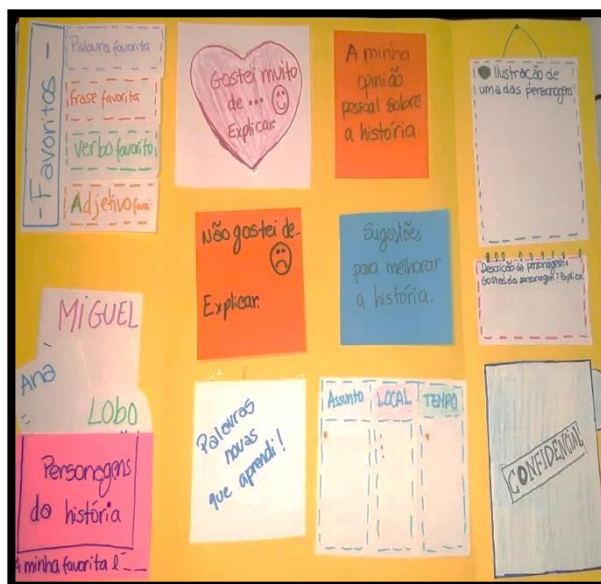 - Favoritos -
Palavra favorita
frase favorita
verbo favorito
Adjetivo favo.
Gostei muito
de ...
Explicar
A minha
opinião
pessoal sobre
a história
Ilustração de
uma das personagens!
Não gostei de...
Explicar.
Sugestões
para melhorar
a história.
Descrição da personagem.
Gostas da personagem? Explica.
MIGUEL
Ana
LOBO
Personagens
da história
A minha favorita é ___
Palavras
novas
que aprendi!
Assunto LOCAL TEMPO
CONFIDENCIAL